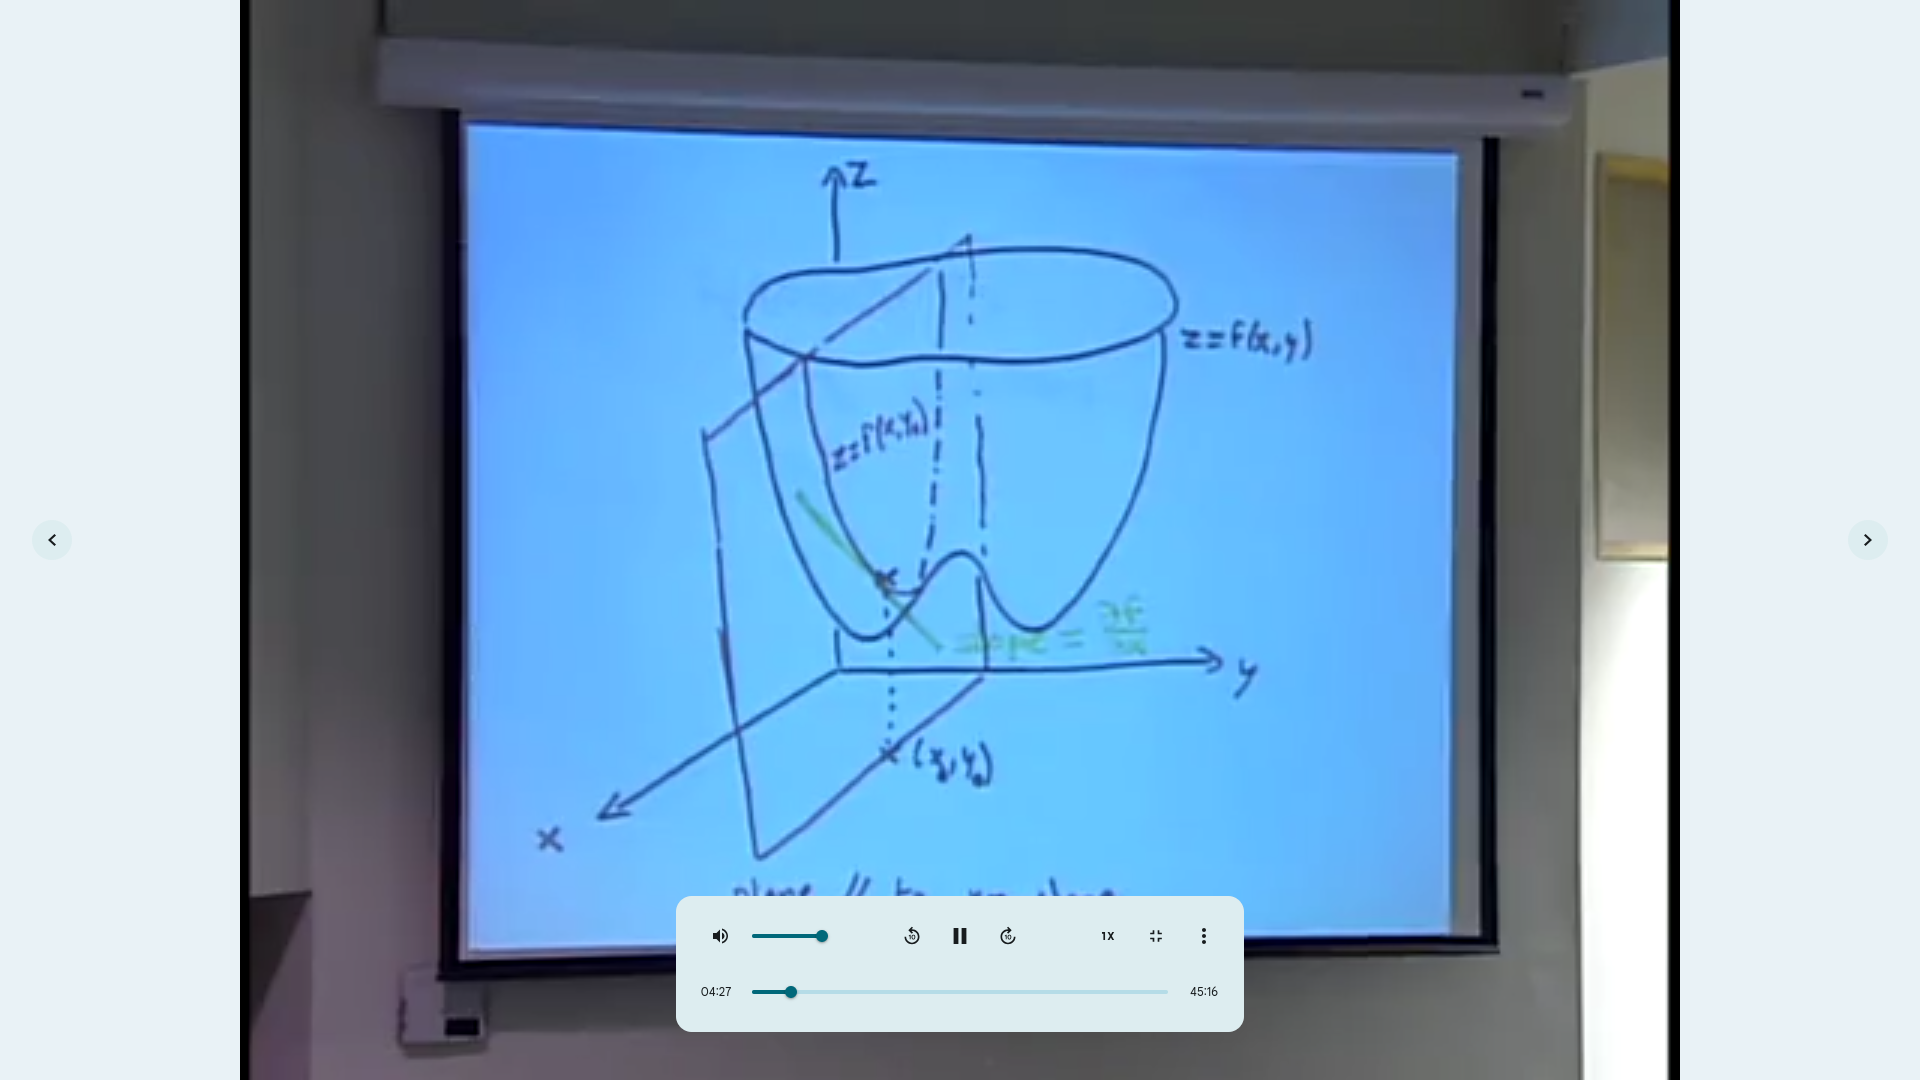 z
z=f(x,y)
z=f(x,y₀)
slope = ∂f/∂x
y
(x₀,y₀)
x
plane // to xz plane
10
10
1X
04:27
45:16